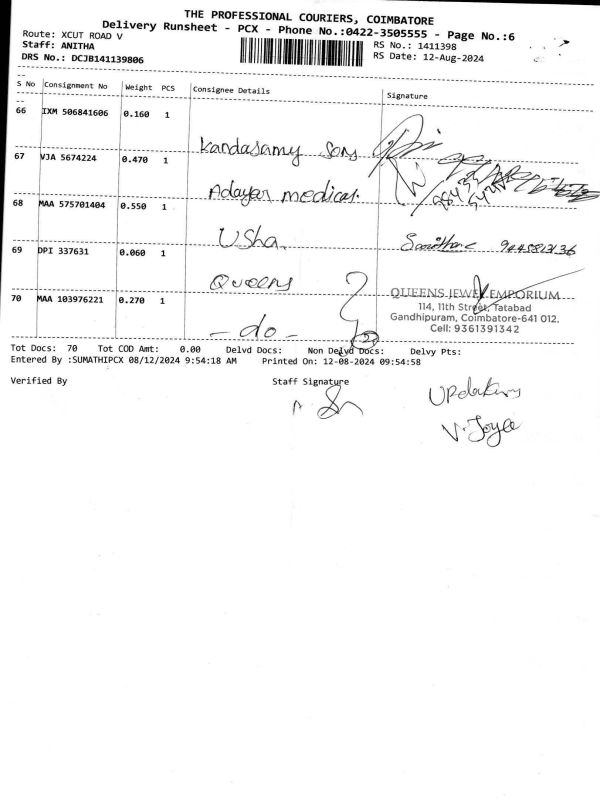 THE PROFESSIONAL COURIERS, COIMBATORE
Delivery Runsheet - PCX - Phone No.:0422-3505555 - Page No.:6
Route: XCUT ROAD V
RS No.: 1411398
Staff: ANITHA
RS Date: 12-Aug-2024
DRS No.: DCJB141139806
S No Consignment No Weight PCS Consignee Details Signature
66 IXM 506841606 0.160 1 Kandasamy Sons
67 VJA 5674224 0.470 1 Adayar medical.
68 MAA 575701404 0.550 1 Usha
69 DPI 337631 0.060 1 Queens
QUEENS JEWEL EMPORIUM
114, 11th Street, Tatabad
Gandhipuram, Coimbatore-641 012.
Cell: 9361391342
70 MAA 103976221 0.270 1 - do -
Tot Docs: 70 Tot COD Amt: 0.00 Delvd Docs: Non Delvd Docs: Delvy Pts:
Entered By :SUMATHIPCX 08/12/2024 9:54:18 AM Printed On: 12-08-2024 09:54:58
Verified By Staff Signature
V. Joyce